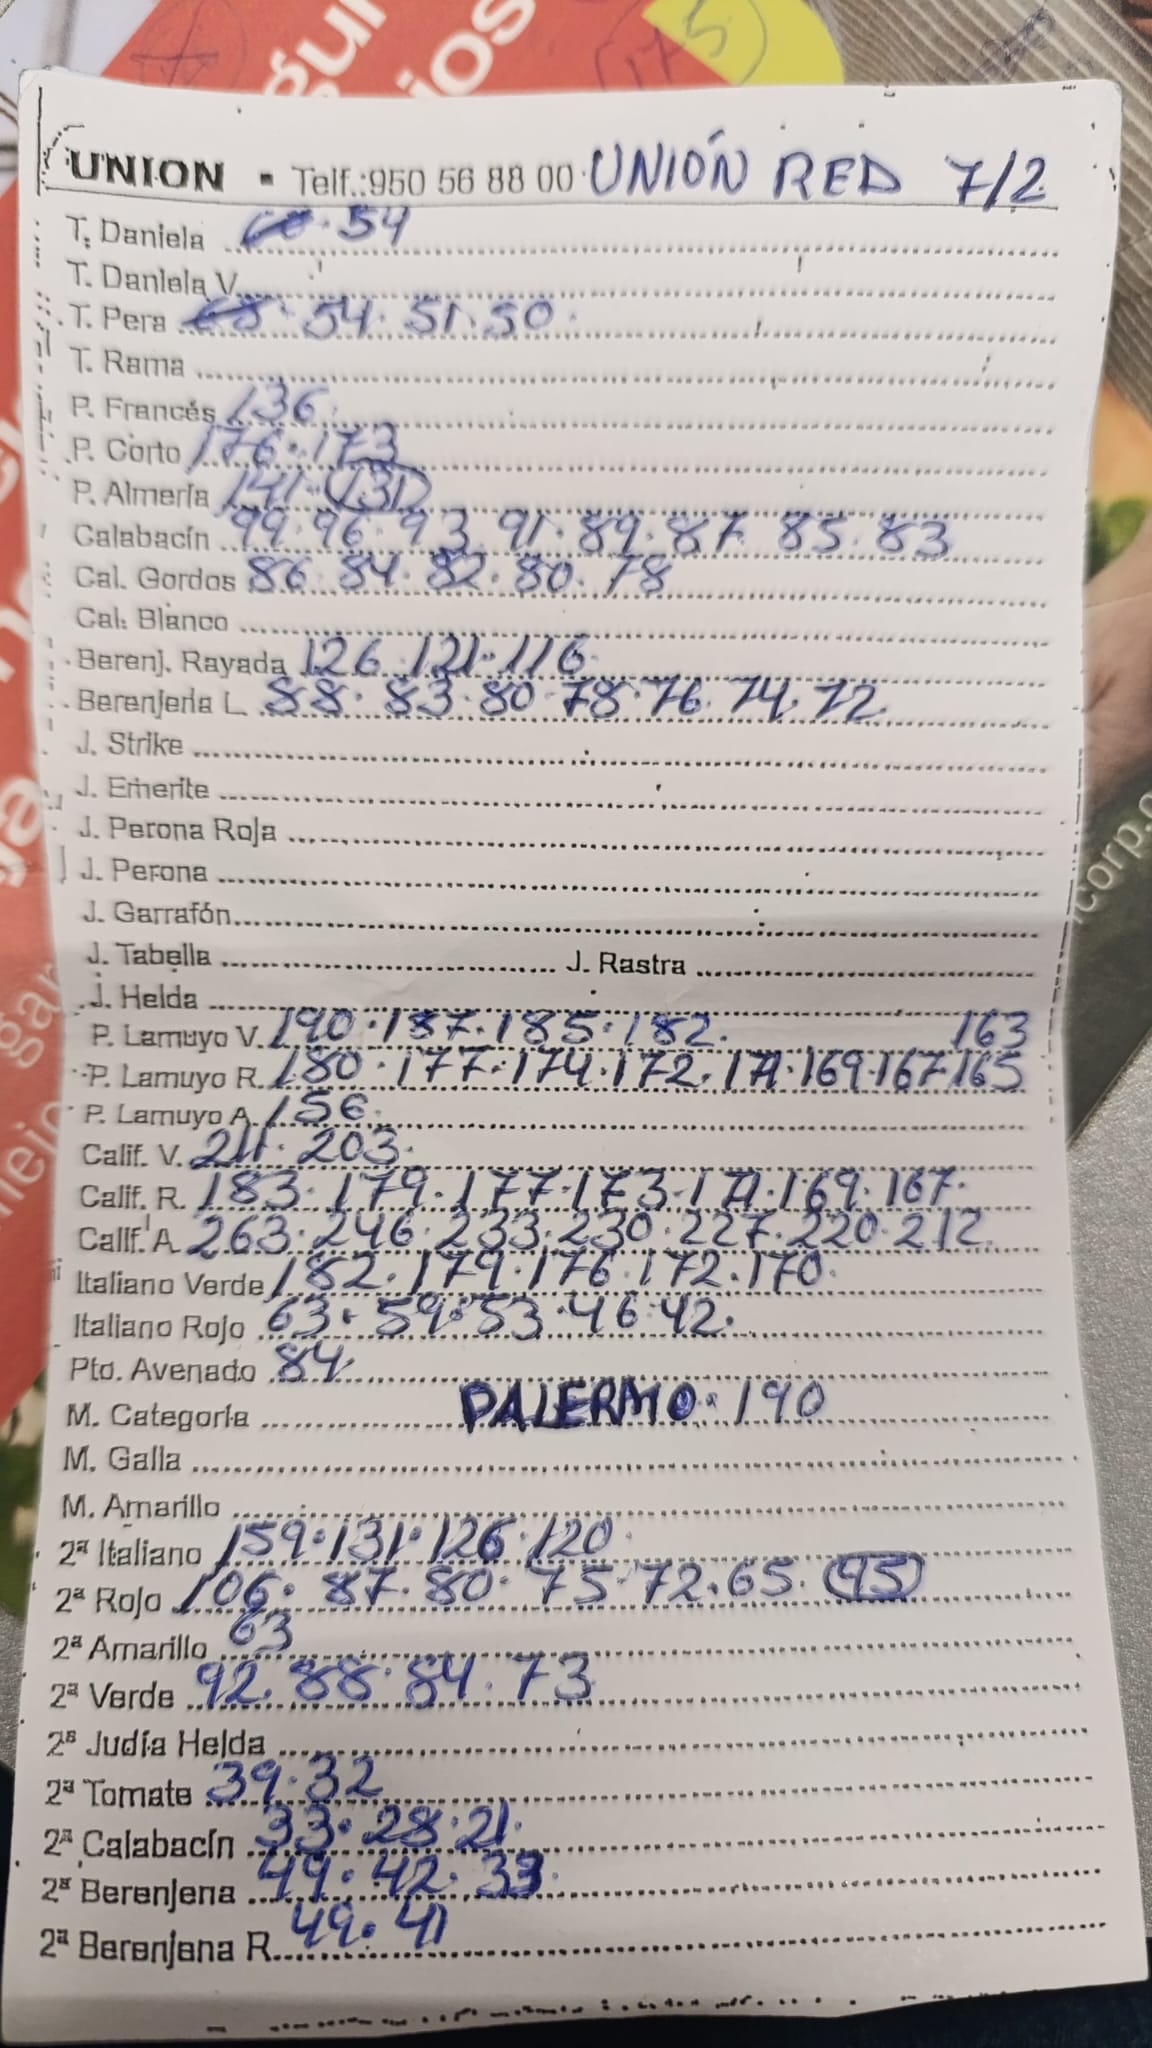 UNION - Telf.:950 56 88 00 UNIÓN RED 7/2
T. Daniela 54
T. Daniela V.
T. Pera 54. 51. 50.
T. Rama
P. Francés 136.
P. Corto 176. 173
P. Almería 141. 131
Calabacín 99. 96. 93. 91. 89. 87. 85. 83
Cal. Gordos 86. 84. 82. 80. 78
Cal. Blanco
Berenj. Rayada 126. 121. 116
Berenjena L. 88. 83. 80. 78. 76. 74. 72.
J. Strike
J. Emerite
J. Perona Roja
J. Perona
J. Garrafón
J. Tabella J. Rastra
J. Helda
P. Lamuyo V. 190. 187. 185. 182. 163
P. Lamuyo R. 180. 177. 174. 172. 171. 169. 167. 165
P. Lamuyo A. 156.
Calif. V. 211. 203.
Calif. R. 183. 179. 177. 173. 171. 169. 167.
Calif. A. 263. 246. 233. 230. 227. 220. 212.
Italiano Verde 182. 179. 176. 172. 170.
Italiano Rojo 63. 59. 53. 46. 42.
Pto. Avenado 84.
M. Categoría PALERMO. 190
M. Galla
M. Amarillo
2ª Italiano 159. 131. 126. 120.
2ª Rojo 106. 87. 80. 75. 72. 65. 95
2ª Amarillo 63
2ª Verde 92. 88. 84. 73
2ª Judía Helda
2ª Tomate 39. 32
2ª Calabacín 33. 28. 21.
2ª Berenjena 49. 42. 33.
2ª Berenjena R. 49. 41